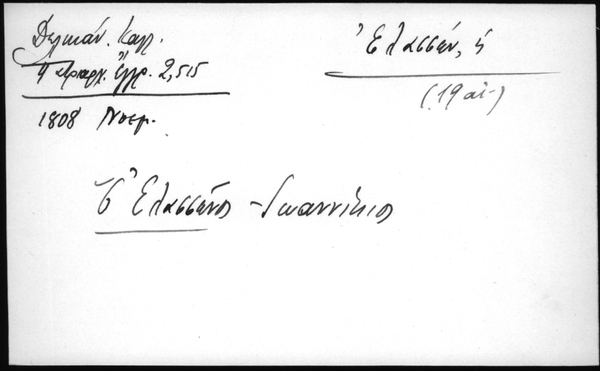 Δελικάν. Καλλ.
Πατριαρχ. ἔγγρ. 2,515
1808 Νοεμ.
Ἐλασσών, ἡ
(19 αἰ-)
ὁ Ἐλασσῶνος - Ἰωαννίκιος